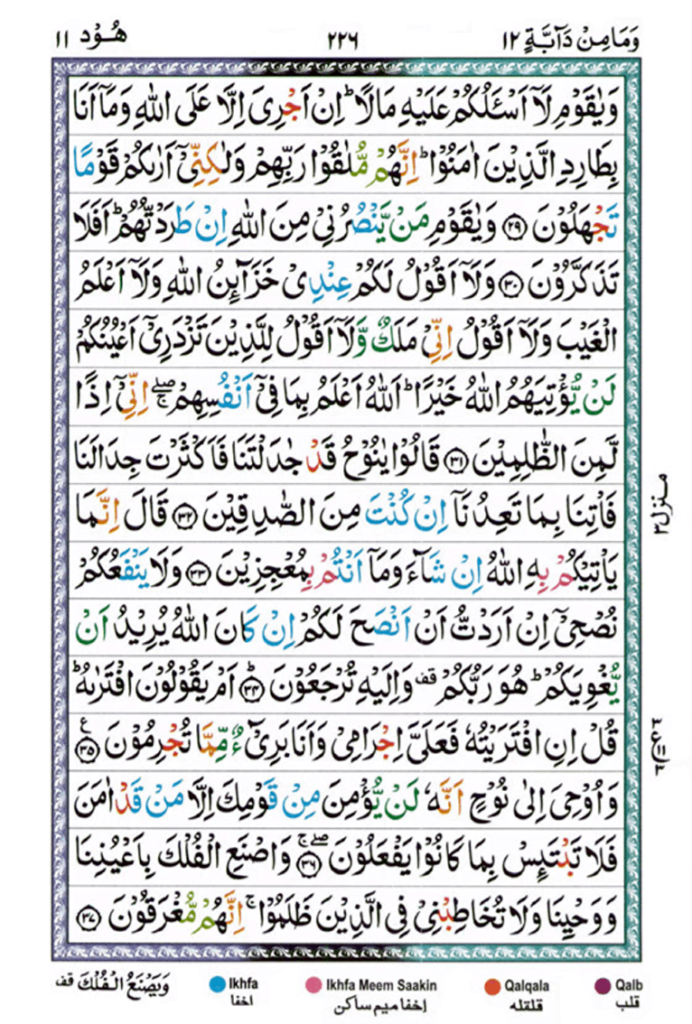 وَمَا مِنْ دَآبَّةٍ ١٢ ٢٢٦ هُوْد ١١
وَيٰقَوْمِ لَآ اَسْـَٔلُكُمْ عَلَيْهِ مَالًا ؕ اِنْ اَجْرِىَ اِلَّا عَلَى اللّٰهِ وَمَاۤ اَنَا
بِطَارِدِ الَّذِيْنَ اٰمَنُوْا ؕ اِنَّهُمْ مُّلٰقُوْا رَبِّهِمْ وَلٰـكِنِّىْۤ اَرٰٮكُمْ قَوْمًا
تَجْهَلُوْنَ ﴿٢٩﴾ وَيٰقَوْمِ مَنْ يَّنْصُرُنِىْ مِنَ اللّٰهِ اِنْ طَرَدْتُّهُمْ ؕ اَفَلَا
تَذَكَّرُوْنَ ﴿٣٠﴾ وَلَاۤ اَقُوْلُ لَكُمْ عِنْدِىْ خَزَآئِنُ اللّٰهِ وَلَاۤ اَعْلَمُ
الْغَيْبَ وَلَاۤ اَقُوْلُ اِنِّىْ مَلَكٌ وَّلَاۤ اَقُوْلُ لِلَّذِيْنَ تَزْدَرِىْۤ اَعْيُنُكُمْ
لَنْ يُّؤْتِيَهُمُ اللّٰهُ خَيْرًا ؕ اَللّٰهُ اَعْلَمُ بِمَا فِىْۤ اَنْفُسِهِمْ ۖۚ اِنِّىْۤ اِذًا
لَّمِنَ الظّٰلِمِيْنَ ﴿٣١﴾ قَالُوْا يٰنُوْحُ قَدْ جٰدَلْتَنَا فَاَكْثَرْتَ جِدَالَنَا
فَاْتِنَا بِمَا تَعِدُنَاۤ اِنْ كُنْتَ مِنَ الصّٰدِقِيْنَ ﴿٣٢﴾ قَالَ اِنَّمَا
يَاْتِيْكُمْ بِهِ اللّٰهُ اِنْ شَآءَ وَمَاۤ اَنْتُمْ بِمُعْجِزِيْنَ ﴿٣٣﴾ وَلَا يَنْفَعُكُمْ
نُصْحِىْۤ اِنْ اَرَدْتُّ اَنْ اَنْصَحَ لَكُمْ اِنْ كَانَ اللّٰهُ يُرِيْدُ اَنْ
يُّغْوِيَكُمْ ؕ هُوَ رَبُّكُمْ قف وَاِلَيْهِ تُرْجَعُوْنَ ﴿٣٤﴾ اَمْ يَقُوْلُوْنَ افْتَرٰٮهُ ؕ
قُلْ اِنِ افْتَرَيْتُهٗ فَعَلَىَّ اِجْرَامِىْ وَاَنَا بَرِىْٓءٌ مِّمَّا تُجْرِمُوْنَ ﴿٣٥﴾ ع
وَاُوْحِىَ اِلٰى نُوْحٍ اَنَّهٗ لَنْ يُّؤْمِنَ مِنْ قَوْمِكَ اِلَّا مَنْ قَدْ اٰمَنَ
فَلَا تَبْتَئِسْ بِمَا كَانُوْا يَفْعَلُوْنَ ۖۚ ﴿٣٦﴾ وَاصْنَعِ الْفُلْكَ بِاَعْيُنِنَا
وَوَحْيِنَا وَلَا تُخَاطِبْنِىْ فِى الَّذِيْنَ ظَلَمُوْا ۚ اِنَّهُمْ مُّغْرَقُوْنَ ﴿٣٧﴾
منزل ٣
وَيَصْنَعُ الْفُلْكَ قف
Ikhfa Ikhfa Meem Saakin Qalqala Qalb
اخفا إخفا میم ساکن قلقله قلب